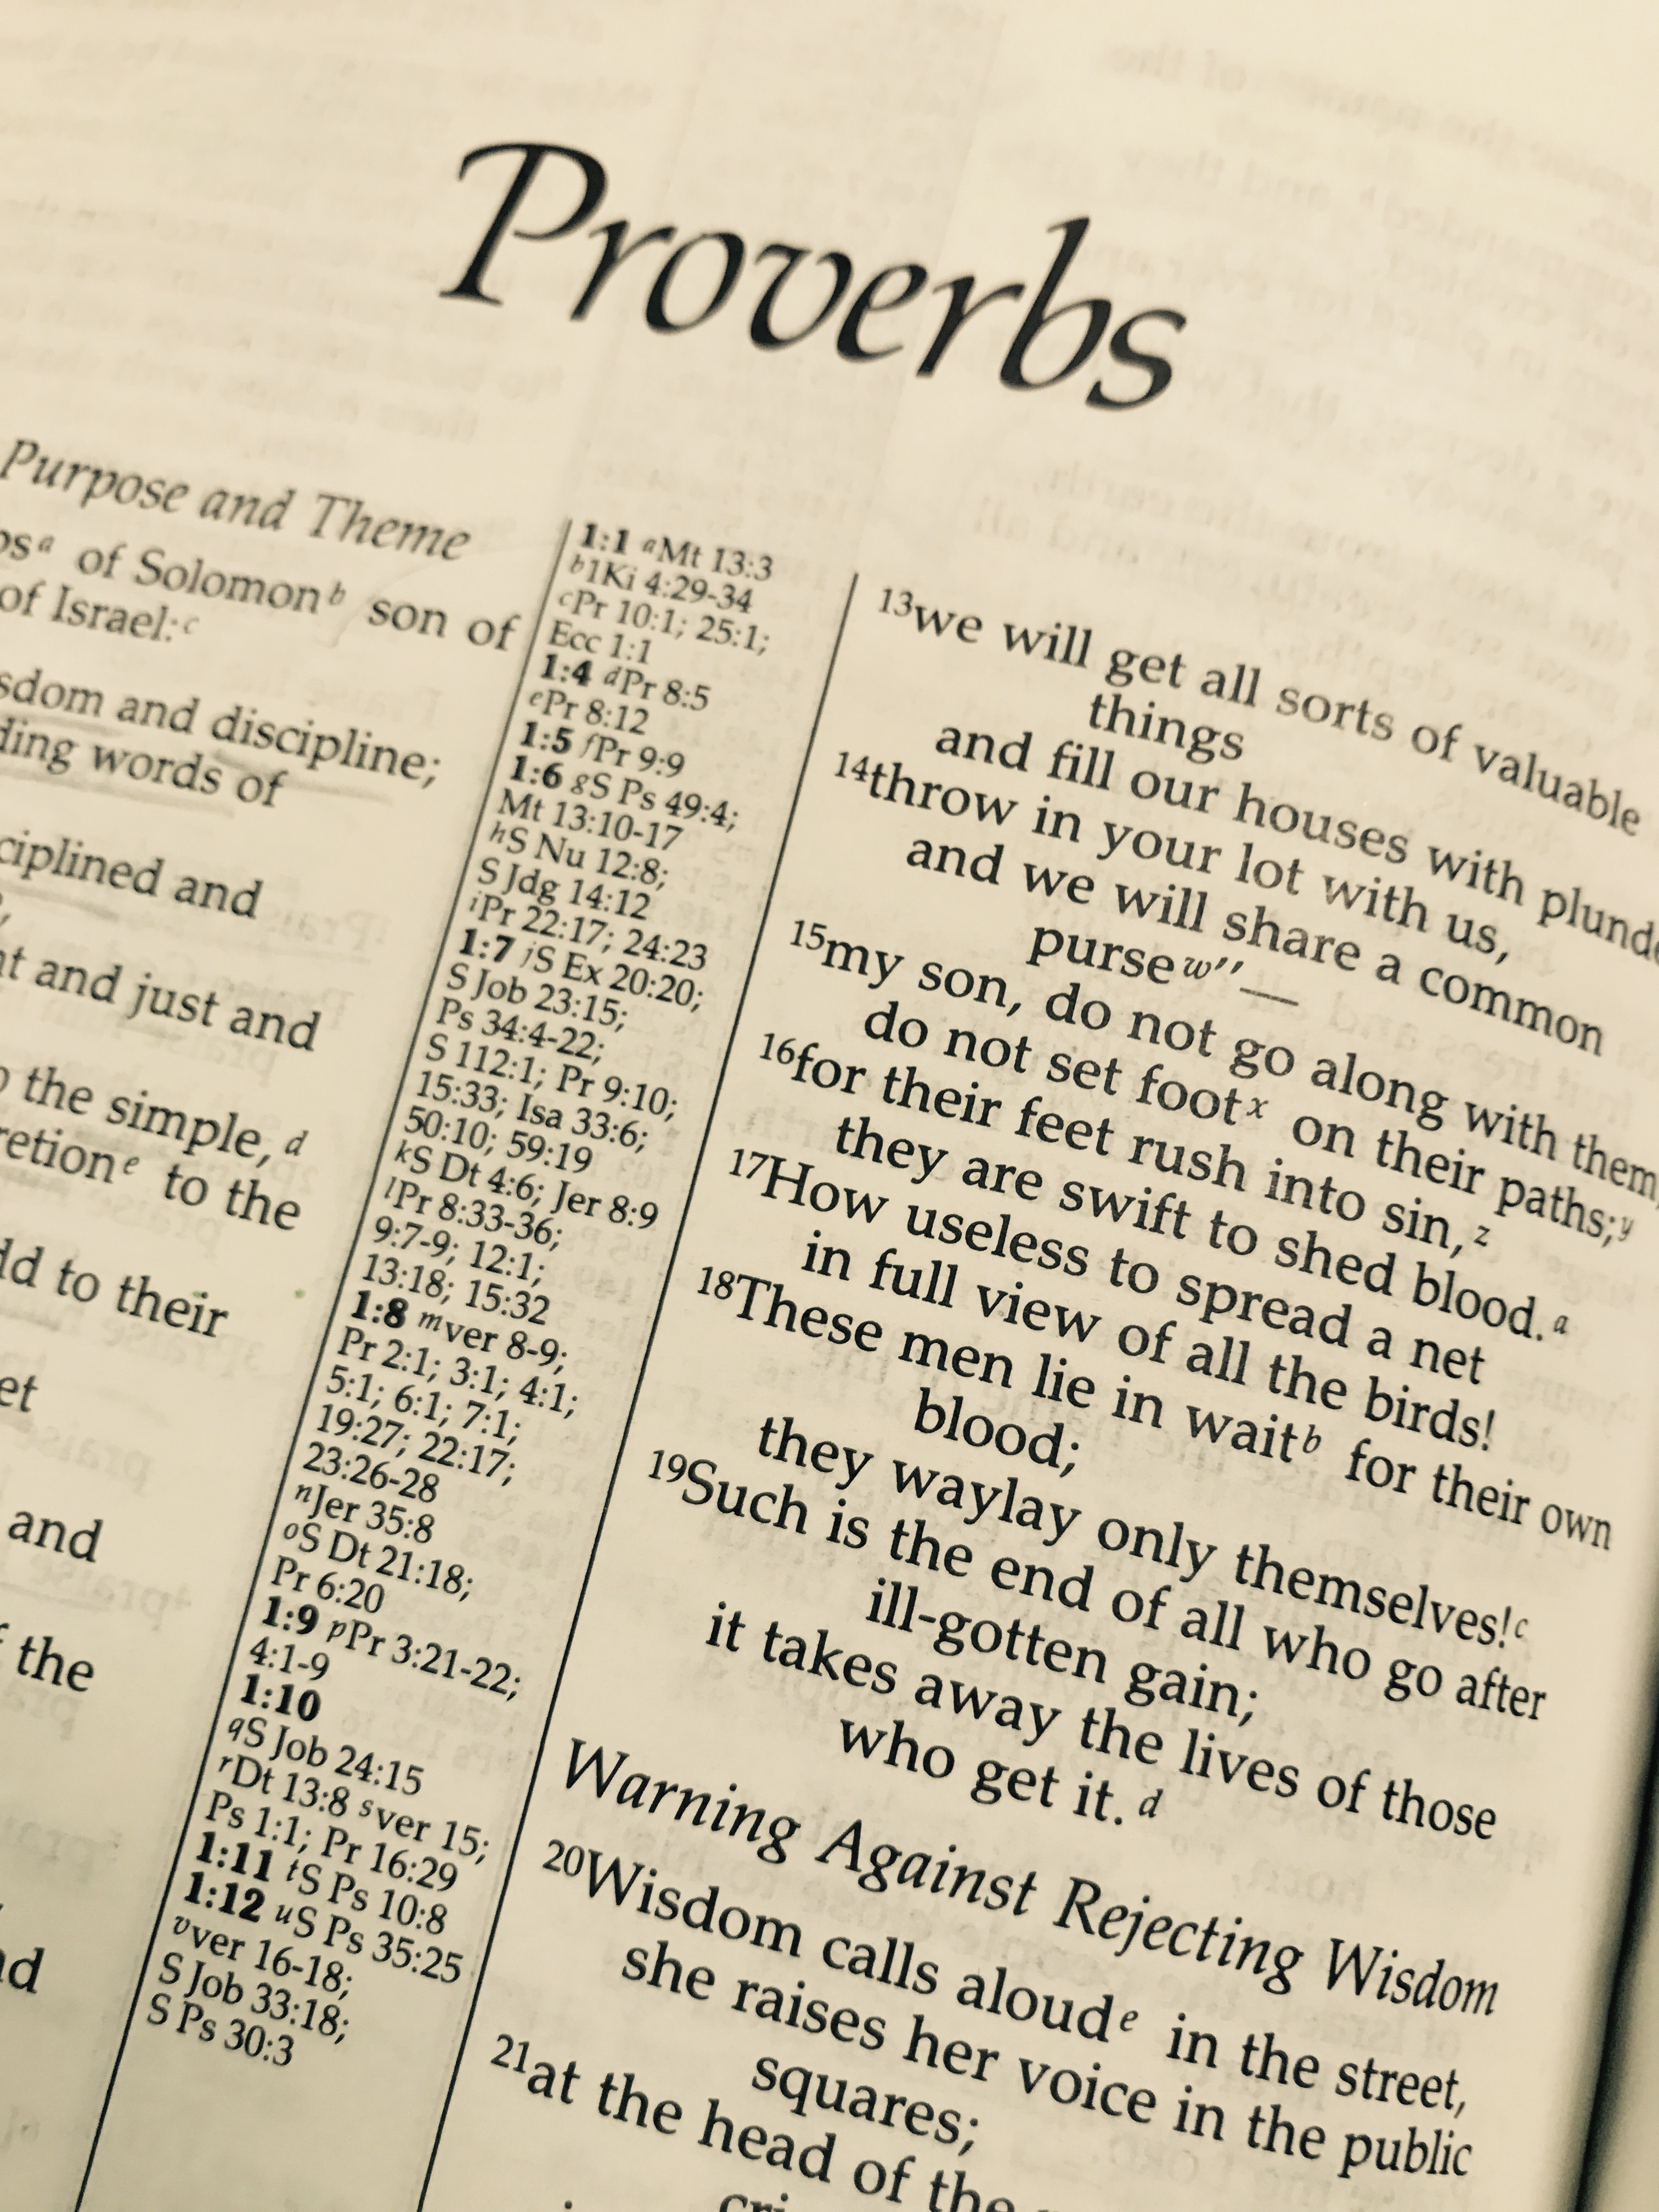 Proverbs
Purpose and Theme
of Solomon b son of
of Israel: c
and discipline;
words of
and
and just and
the simple, d
e to the
to their
and
the
1:1 aMt 13:3
b1Ki 4:29-34
cPr 10:1; 25:1;
Ecc 1:1
1:4 dPr 8:5
ePr 8:12
1:5 fPr 9:9
1:6 gS Ps 49:4;
Mt 13:10-17
hS Nu 12:8;
S Jdg 14:12
iPr 22:17; 24:23
1:7 jS Ex 20:20;
S Job 23:15;
Ps 34:4-22;
S 112:1; Pr 9:10;
15:33; Isa 33:6;
50:10; 59:19
kS Dt 4:6; Jer 8:9
lPr 8:33-36;
9:7-9; 12:1;
13:18; 15:32
1:8 mver 8-9;
Pr 2:1; 3:1; 4:1;
5:1; 6:1; 7:1;
19:27; 22:17;
23:26-28
nJer 35:8
oS Dt 21:18;
Pr 6:20
1:9 pPr 3:21-22;
4:1-9
1:10
qS Job 24:15
rDt 13:8 sver 15;
Ps 1:1; Pr 16:29
1:11 tS Ps 10:8
1:12 uS Ps 35:25
vver 16-18;
S Job 33:18;
S Ps 30:3
13we will get all sorts of valuable
things
and fill our houses with
14throw in your lot with us,
and we will share a common
purse w"—
15my son, do not go along with them,
do not set foot x on their paths; y
16for their feet rush into sin, z
they are swift to shed blood. a
17How useless to spread a net
in full view of all the birds!
18These men lie in wait b for their own
blood;
they waylay only themselves! c
19Such is the end of all who go after
ill-gotten gain;
it takes away the lives of those
who get it. d
Warning Against Rejecting Wisdom
20Wisdom calls aloud e in the street,
she raises her voice in the public
squares;
21at the head of the